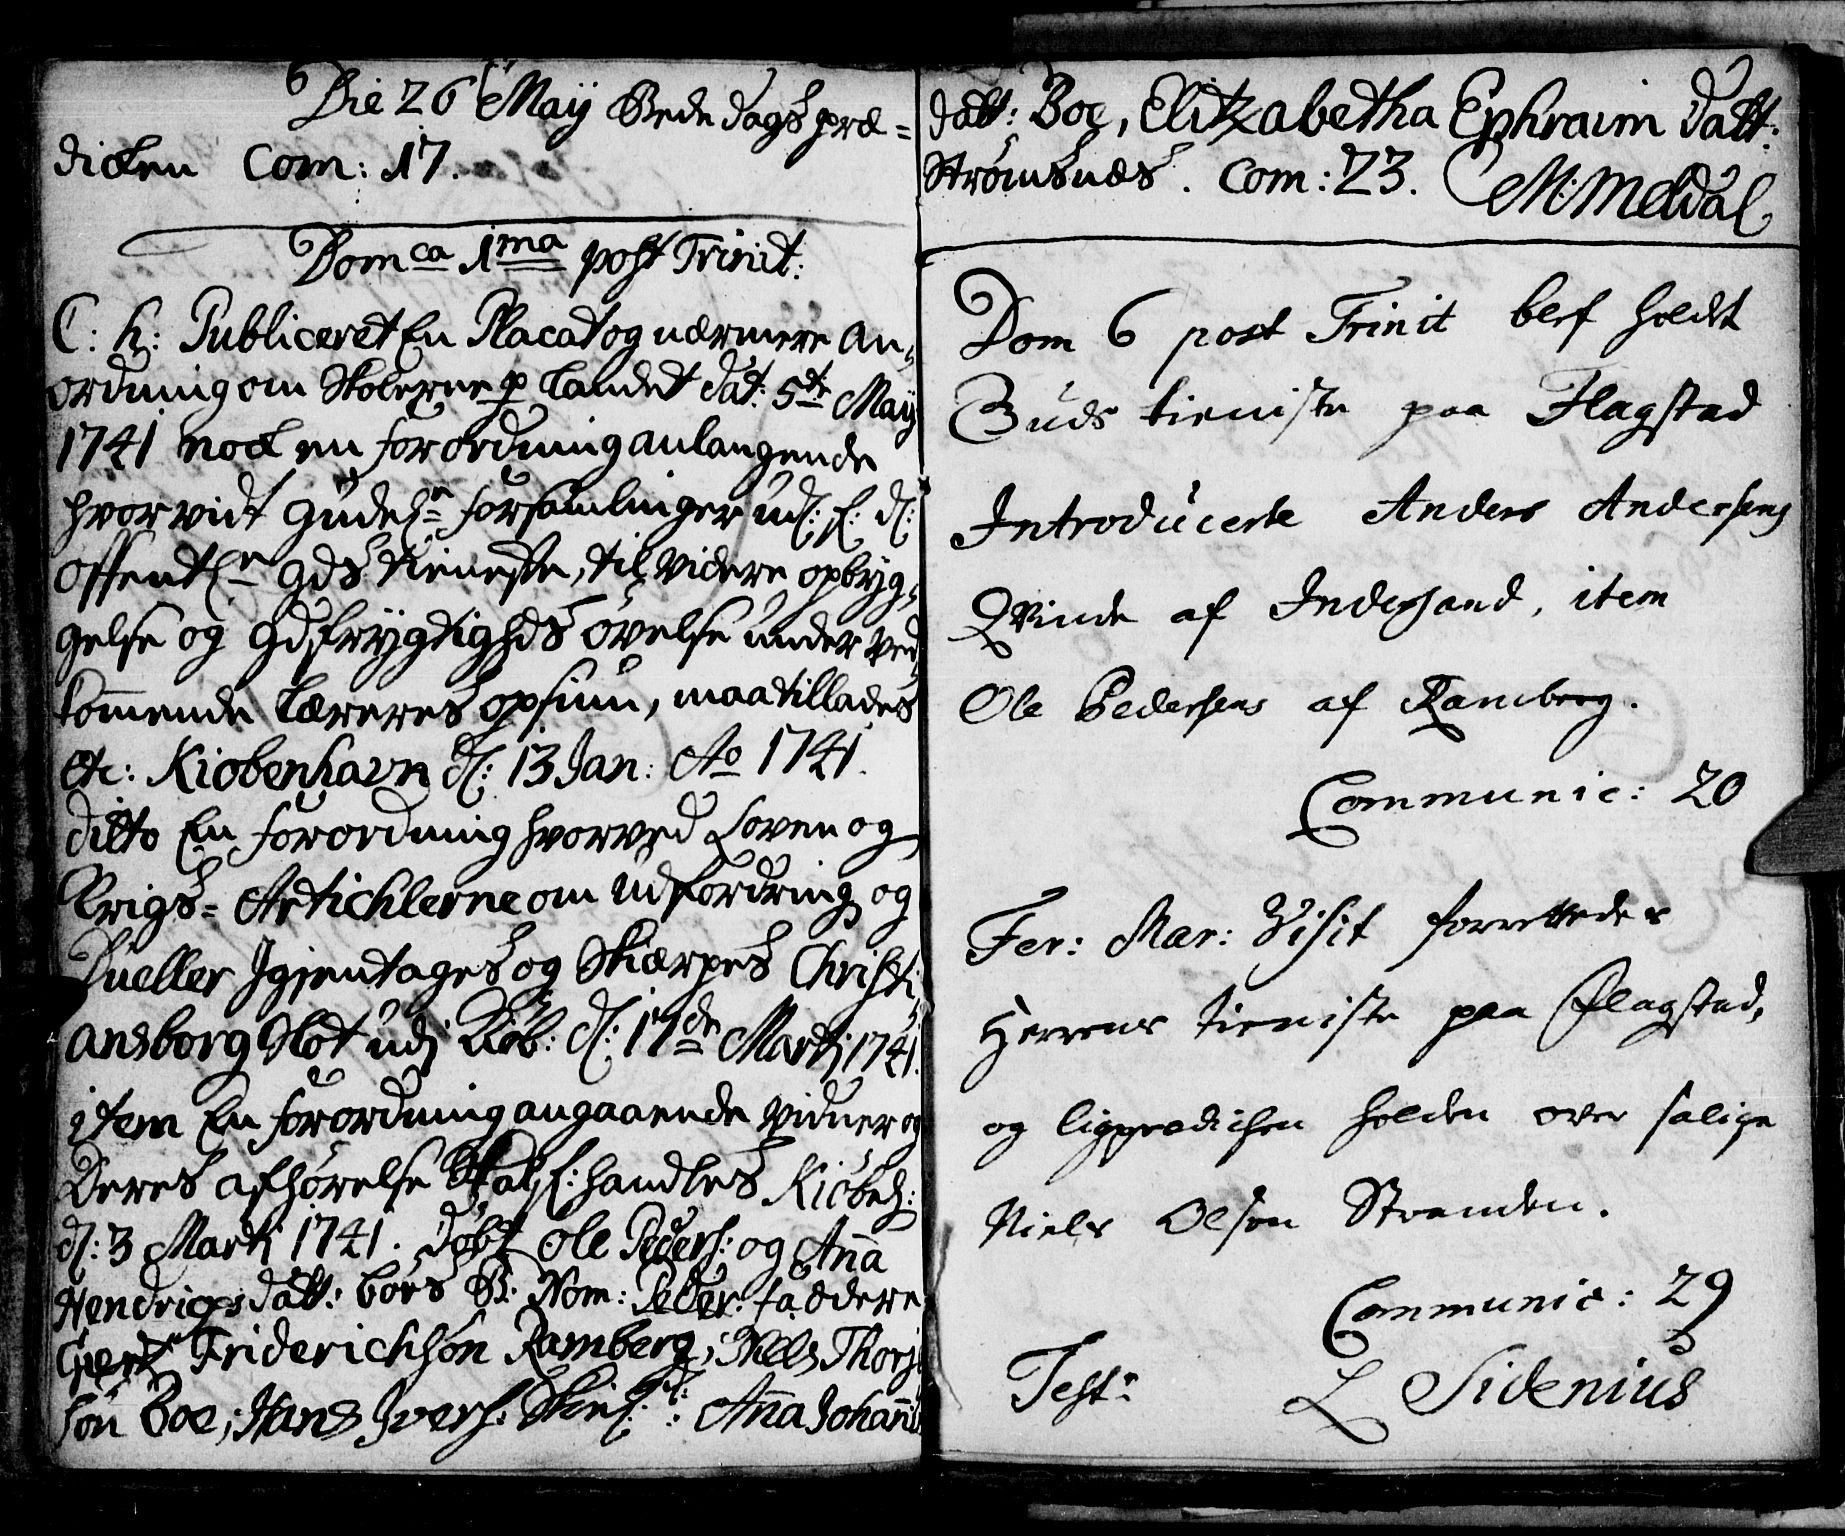 Die 26 Maÿ Bededags præ=
dicken Com: 17.
Domca 1ma post Trinit:
C: h: Publiceret En Placat og nærmere An,
ordning om Skolerne p landet dat: 5te Maÿ
1741 nock en forordning anlangende
hvorvidt gudel:n forsamlinger
offentl:n gds tieneste, til videre opbÿg,
gelse og gdsfrÿgtighds øvelse under ved
kom̅ende læreres opsiun, maa tillades
etc: Kiøbenhavn d: 13 Jan: Ao 1741.
ditto En forordning hvorved Loven og
Krigs= Artichlerne om udfordring og
Dueller Igientages og Skiærpes Christi,
ansborg Slot udj Kiøb: d: 17de Martj 1741.
item En forordning angaaende vidner og
Deres afhørelse Skal f:handles Kiøbeh:
d: 3 Martj 1741. døbt Ole Peders: og An̅a
Hendrichs datt: børs B. Nom: Peder. faddere
Giert Friderichsøn Ramberg, Niels Thorj
søn Boe, Hans Ivers: An̅a Johan̅is
datt: Boe, Elitzabetha Ephraim datt:
Strømsnæs. Com: 23. M: Meldal
Dom 6 post Trinit blef holdt
Guds tieniste paa Flagstad
Introducerte Anders Andersens
Qvinde af Indersand, item
Ole Pedersens af Ramberg.
Communic: 20
Fer: Mar: Visit forrettedes
Herrens tieniste paa Flagstad,
og ligprædichen holden over salige
Niels Olson Stranden.
Communic: 29
Test: L Sidenius